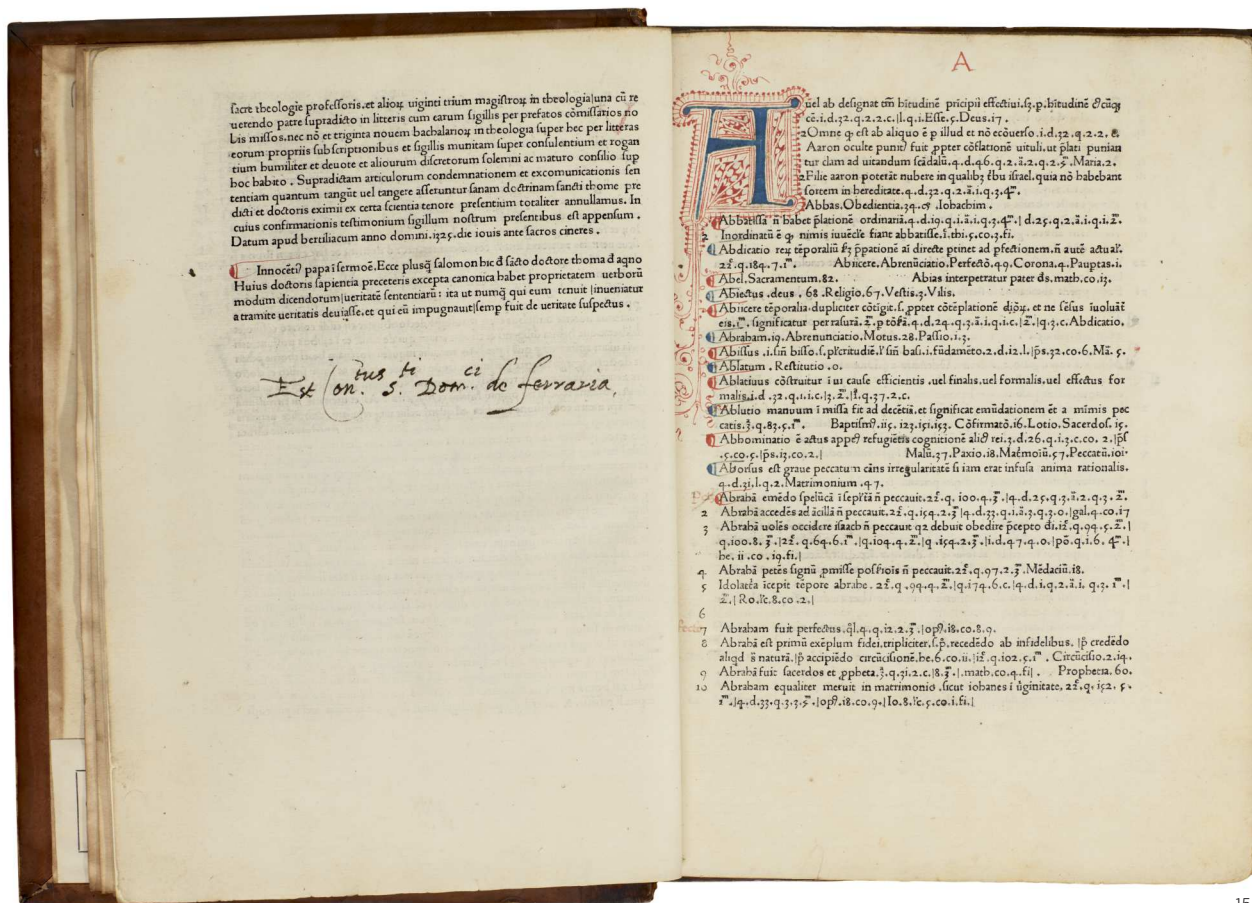 sacre theologie professoris.et alioꝝ uiginti trium magistroꝝ in theologia|una cū re
uerendo patre supradicto in litteris cum earum sigillis per prefatos cōmissarios no
bis missos.nec nō et triginta nouem bachalarioꝝ in theologia super hec per litteras
eorum propriis subscriptionibus et sigillis munitam super consulentium et rogan
tium humiliter et deuote et aliourum discretorum solemni ac maturo consilio sup
hoc habito . Supradictam articulorum condemnationem et excomunicationis sen
tentiam quantum tangūt uel tangere asseruntur sanam doctrinam sancti thome pre
dicti et doctoris eximii ex certa scientia tenore presentium totaliter annullamus. In
cuius confirmationis testimonium sigillum nostrum presentibus est appensum .
Datum apud bertiliacum anno domini.1325.die iouis ante sacros cineres .
Innocētꝰ papa ī sermōe.Ecce plusq̄ salomon hic đ sācto doctore thoma đ aqno
Huius doctoris sapientia preceteris excepta canonica habet proprietatem uerborū
modum dicendorum|ueritatē sententiarū: ita ut numq̄ qui eum tenuit |inueniatur
a tramite ueritatis deuiasse.et qui eū impugnauit|semp fuit de ueritate suspectus .
Est Con.tus S.ti Dom.ci de ferraria
A
Auel ab designat tm̄ hītudinē pricipii effectiui.
cē.i.d.32.q.2.2.c.|l.q.1.Esse.5.Deus.17.
2 Omne ꝙ est ab aliquo ē p illud et nō ecōuerso.i.d.32.q.2.2.
Aaron oculte punitꝰ fuit ꝓpter cōflationē uituli.ut plati punian
tur clam ad uitandum scādalū.4.d.46.q.2.ā.2.q.2. Maria.2.
2 Filie aaron poterāt nubere in qualibꝫ ēbu israel.quia nō habebant
sortem in hereditate.4.d.32.q.2.ā.i.q.3.4m.
Abbas.Obedientia.34. Iohachim.
Abbatissa n̄ habet p̄lationē ordinariā.4.d.19.q.i.ā.i.q.3.4m.| d.25.q.2.ā.i.q.i.2m.
2 Inordinatū ē ꝙ nimis iuuēcl'e fiant abbatisse.i.thi.5.co.3.fi.
Abdicatio reꝝ tēporaliū pationē ai directe ptinet ad pfectionem.n̄ autē actual'.
22.q.184.7.1m. Abiicere.Abrenūciatio.Perfectō.49.Corona.4.Pauptas.i.
Abel.Sacramentum.82. Abias interpretatur pater dn̄s.math.co.13.
Abiectus .deus . 68 .Religio.67.Vestis.3.Vilis.
Abiicere tēporalia.dupliciter cōtigit.s.ꝓpter cōtēplationē et ne sēsus īuoluāt
eis.1m. significatur per rasurā. 4.d.24.q.3.ā.i.q.i.c.|2.|q.3.c.Abdicatio.
Abraham.19.Abrenunciatio.Motus.28.Passio.1.3.
Abissus .i.sin̄ bisso.s.pl'critudiē.l'sin̄ basi.i.fūdamēto.2.d.12.l.|p̄s.32.co.6.Ma. 5.
Ablatum . Restitutio .0.
Ablatiuus cōstruitur ī ui cause efficientis .uel finalis.uel formalis.uel effectus for
malis.i.d .32.q.1.i.c.|3. 2.|l.q.37.2.c.
Ablutio manuum ī missa fit ad decētiā.et significat emūdationem ēt a mimis pec
catis.3.q.83.5.1m. Baptismꝰ.115. 123.151.153. Cōfirmatō.16.Lotio.Sacerdos. 15.
Abhominatio ē actus appetꝰ refugiētis cognitionē rei.3.d.26.q.i.3.c.co. 2.|p̄s
.5.co.5.|p̄s.13.co.2.| Malū.37.Paxio.18. 57.Peccatū.101.
Aborsus est graue peccatum cāns irregularitatē si iam erat infusa anima rationalis.
4.d.31.l.q.2.Matrimonium .47.
Abrahā emēdo spelūcā ī n̄ peccauit.22.q. 100.4.3m.|4.d.25.q.3.ā.2.q.3.2m.
2 Abrahā accedēs ad ācillā n̄ peccauit.22.q.154.2.3m|4.d.33.q.1.ā.3.q.3.0.|gal.4.co.17
3 Abrahā uolēs occidere isaach n̄ peccauit q2 debuit obedire p̄cepto di.12.q.94.5.2m.|
q.100.8. 3m.|22.q.64.6.1m.|q.104.4.2m.|q .154.2.3m.|i.d.47.4.0.|pō.q.1.6. 4m.|
he. 11 .co .19.fi.|
4 Abrahā petēs signū ꝓmisse n̄ peccauit.22.q.97.2.3m.Mēdaciū.18.
5 Idolatria īcepit tēpore abrahe. 22.q .94.4. 2m.|q.174.6.c.|4.d.i.q.2.ā.i. q.3. 1m.|
2m.| Ro.l'c.8.co .2.|
6
7 Abraham fuit perfectus.ql.4.q.12.2.3m.|opꝰ.18.co.8.9.
8 Abrahā est primū exēplum fidei.tripliciter.s.p̄.recedēdo ab infidelibus. |p̄ credēdo
aliqd naturā.|p̄ accipiēdo circūcisionē.he.6.co.11.|12.q.102.5.1m . Circūcisio.2.14.
9 Abrahā fuit sacerdos et ꝓpheta.3.q.31.2.c.|8.3m.|.math.co.4.fi| . Prophetia. 60.
10 Abraham equaliter meruit in matrimonio .sicut iohanes i ūginitate. 22.q. 152. 5.
1m.|4.d.33.q.3.3.|opꝰ.18.co.9.|Io.8.l'c.5.co.i.fi.|
15